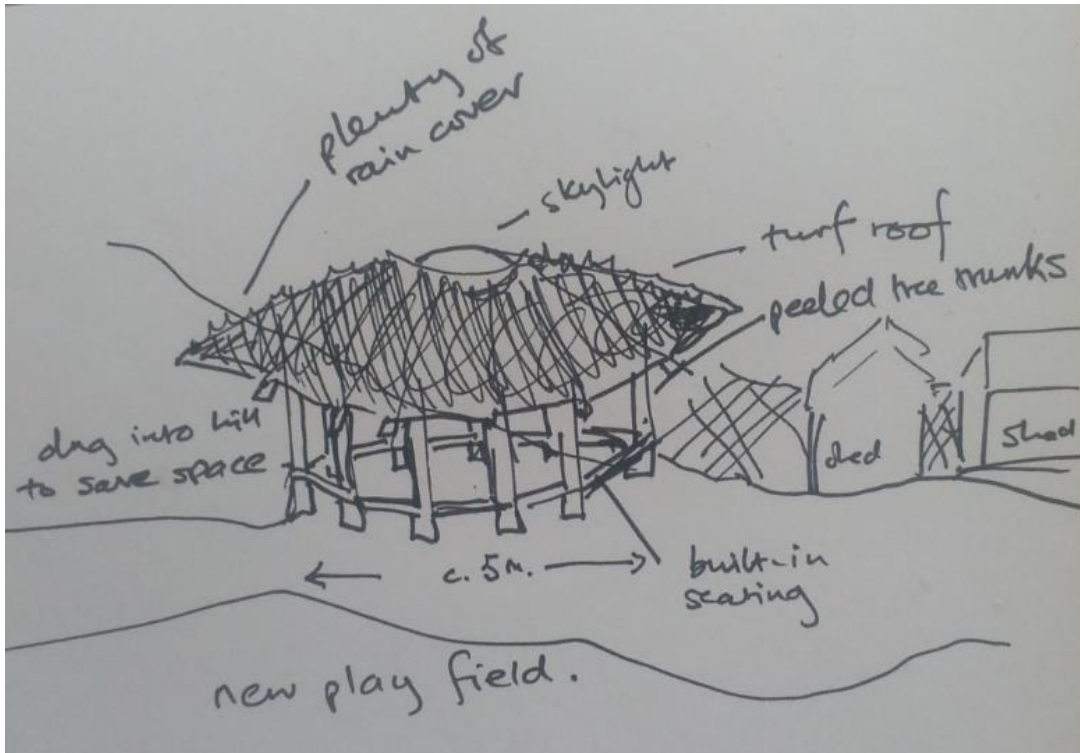 plenty of
rain cover
skylight
turf roof
peeled tree trunks
dug into hill
to save space
shed
shed
c. 5m.
built-in
seating
new play field.